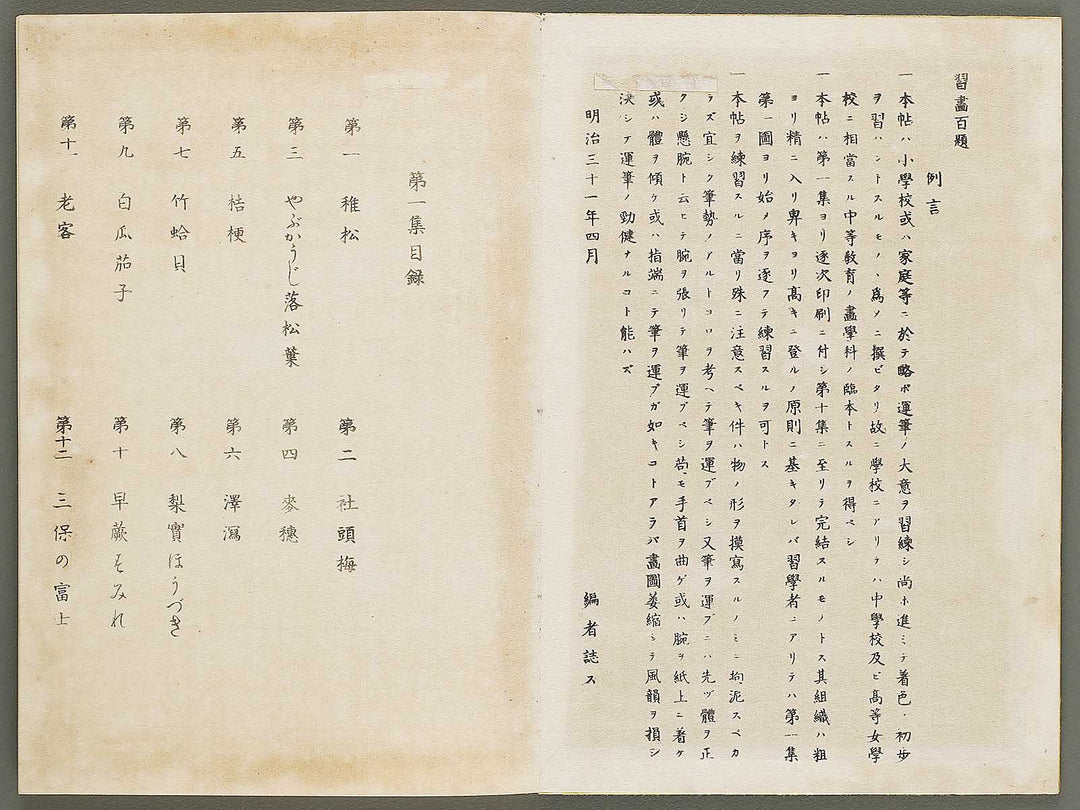 習畫百題
例言
一本帖ハ小學校或ハ家庭等ニ於テ略ボ運筆ノ大意ヲ習練シ尚ホ進ミテ着色ノ初步
ヲ習ハントスルモノヽ爲メニ撰ビタリ故ニ學校ニアリテハ中學校及ビ高等女學
校ニ相當スル中等敎育ノ畵學科ノ臨本トスルヲ得ベシ
一本帖ハ第一集ヨリ逐次印刷ニ付シ第十集ニ至リテ完結スルモノトス其組織ハ粗
ヨリ精ニ入リ卑キヨリ高キニ登ルノ原則ニ基キタレバ習學者ニアリテハ第一集
第一圖ヨリ始メ序ヲ逐フテ練習スルヲ可トス
一本帖ヲ練習スルニ當リ殊ニ注意スベキ件ハ物ノ形ヲ摸寫スルノミニ拘泥スベカ
ラズ宜シク筆勢ノアルトコロヲ考ヘテ筆ヲ運ブベシ又筆ヲ運ブニハ先ヅ體ヲ正
クシ懸腕ト云ヒテ腕ヲ張リテ筆ヲ運ブベシ苟モ手首ヲ曲ゲ或ハ腕ヲ紙上ニ着ケ
或ハ體ヲ傾ケ或ハ指端ニテ筆ヲ運ブガ如キコトアラバ畵圖萎縮シテ風韻ヲ損シ
決シテ運筆ノ勁健ナルコト能ハズ
明治三十一年四月　編者誌ス
第一集目録
第一　稚松　第二　社頭梅
第三　やぶかうじ落松葉　第四　麥穗
第五　桔梗　第六　澤瀉
第七　竹蛤貝　第八　梨實ほうづき
第九　白瓜茄子　第十　早蕨すみれ
第十一　老客　第十二　三保の富士